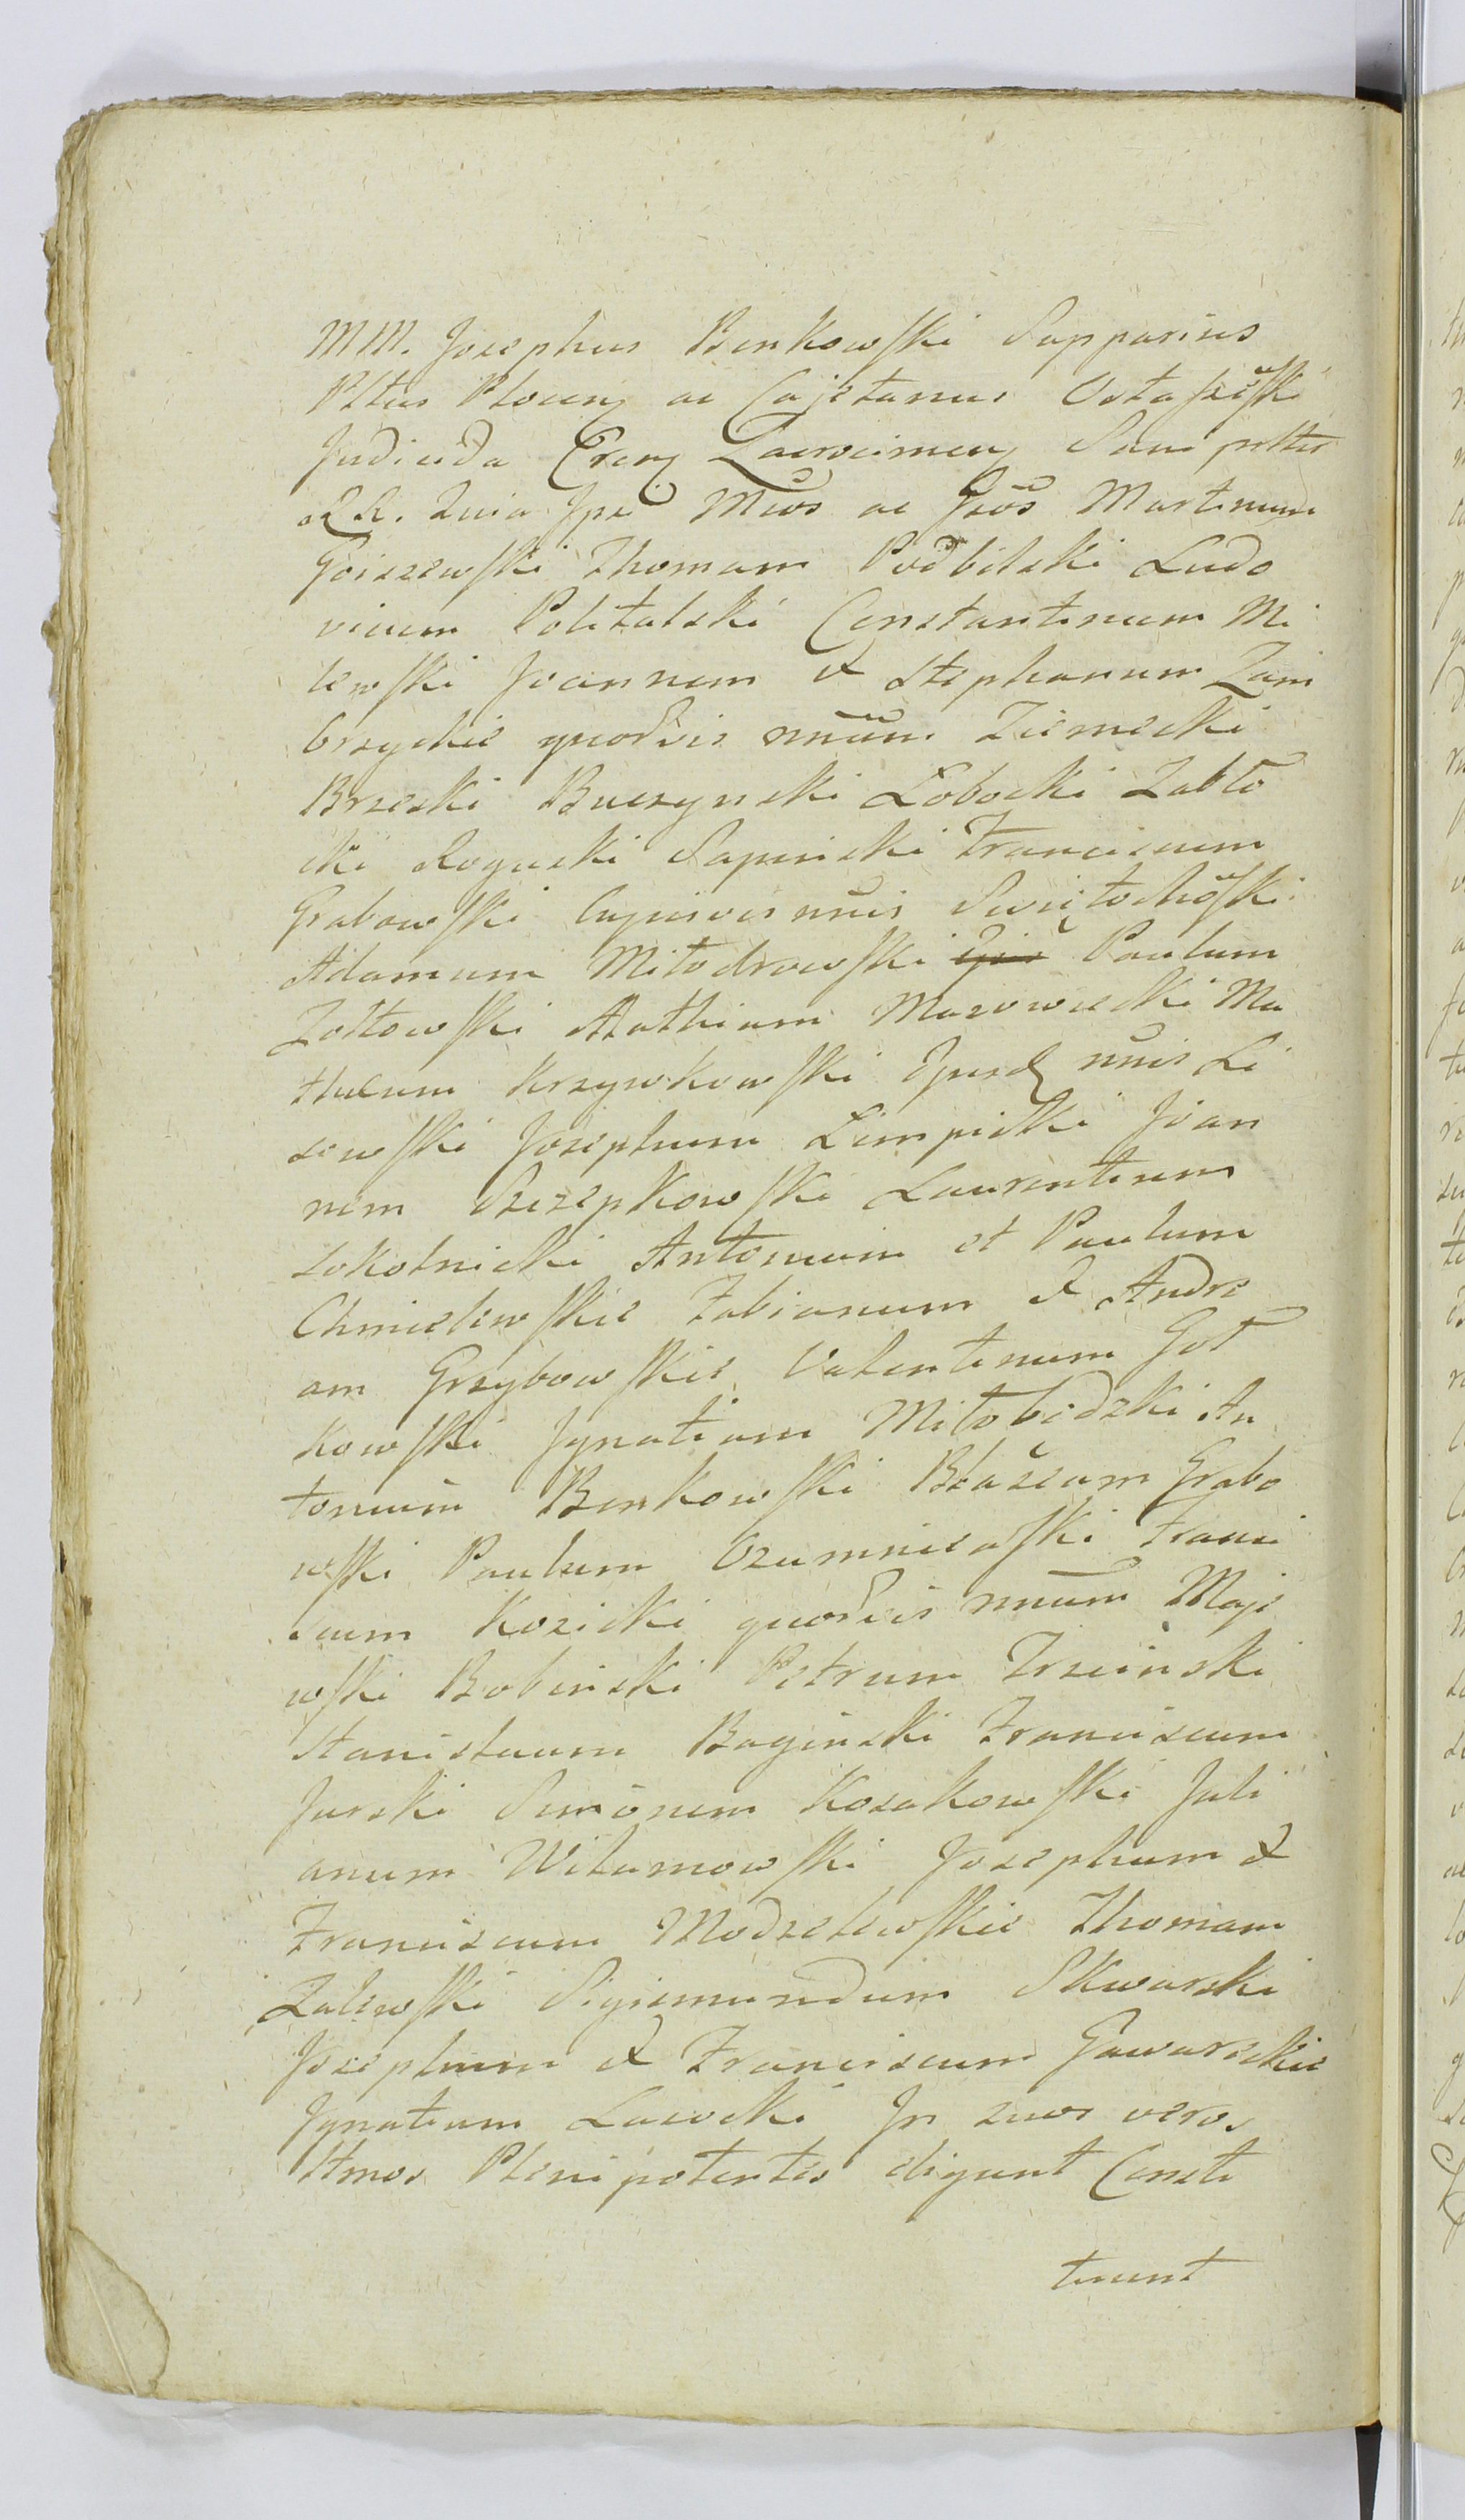 MM. Josephus Benkowski Supparius
Pltus Plocen ac Cajetanus Ostaszẽski
Judicida Cren Zacrocimen Suni pltter
RR. Quia Ipsi Mcos ac Gsos Martinum
Goiszewski Thomam Podbilski Ludo
vicum Politalski Constantinum Mi
lewski Joannem & Stephanum Zam
brzyckie quorvis nnũm Ziemecki
Brzeski Buczynski Łobocki Zabło
cki Rogucki Sapinski Franciscum
Grabowski Cujusvis nñis Swiętochõski
Adamum Miłodrowski Paulum
Zołtowski Mathiam Mazowiecki Ma
theum Krzywkowski Ejusd nñis Li
sewski Josephum Lempicki Joan
nem Szczepkowski Laurentium
Sokolnicki Antonium et Paulum
Chmielewskie Fabianum & Andre
am Grzybowskie Valentinum Goł
kowski Ignatium Miłobędzki An
tonium Benkowski Błażeum Grabo
wski Paulum Czumniewski Franci
scum Kozicki quorvis nnũm Maje
wski Bobinski Petrum Trzcinski
Stanislaum Baginski Franciscum
Jurski Simonem Kosakowski Juli
anum Wilamowski Josephum &
Franciscum Modzelewskie Thomam
Zalewski Sigismundum Skwarski
Josephum & Franciscum Gawareckie
Ignatium Lasocki In suos veros
Ittmos Plenipotentes eligunt Consti
tuunt